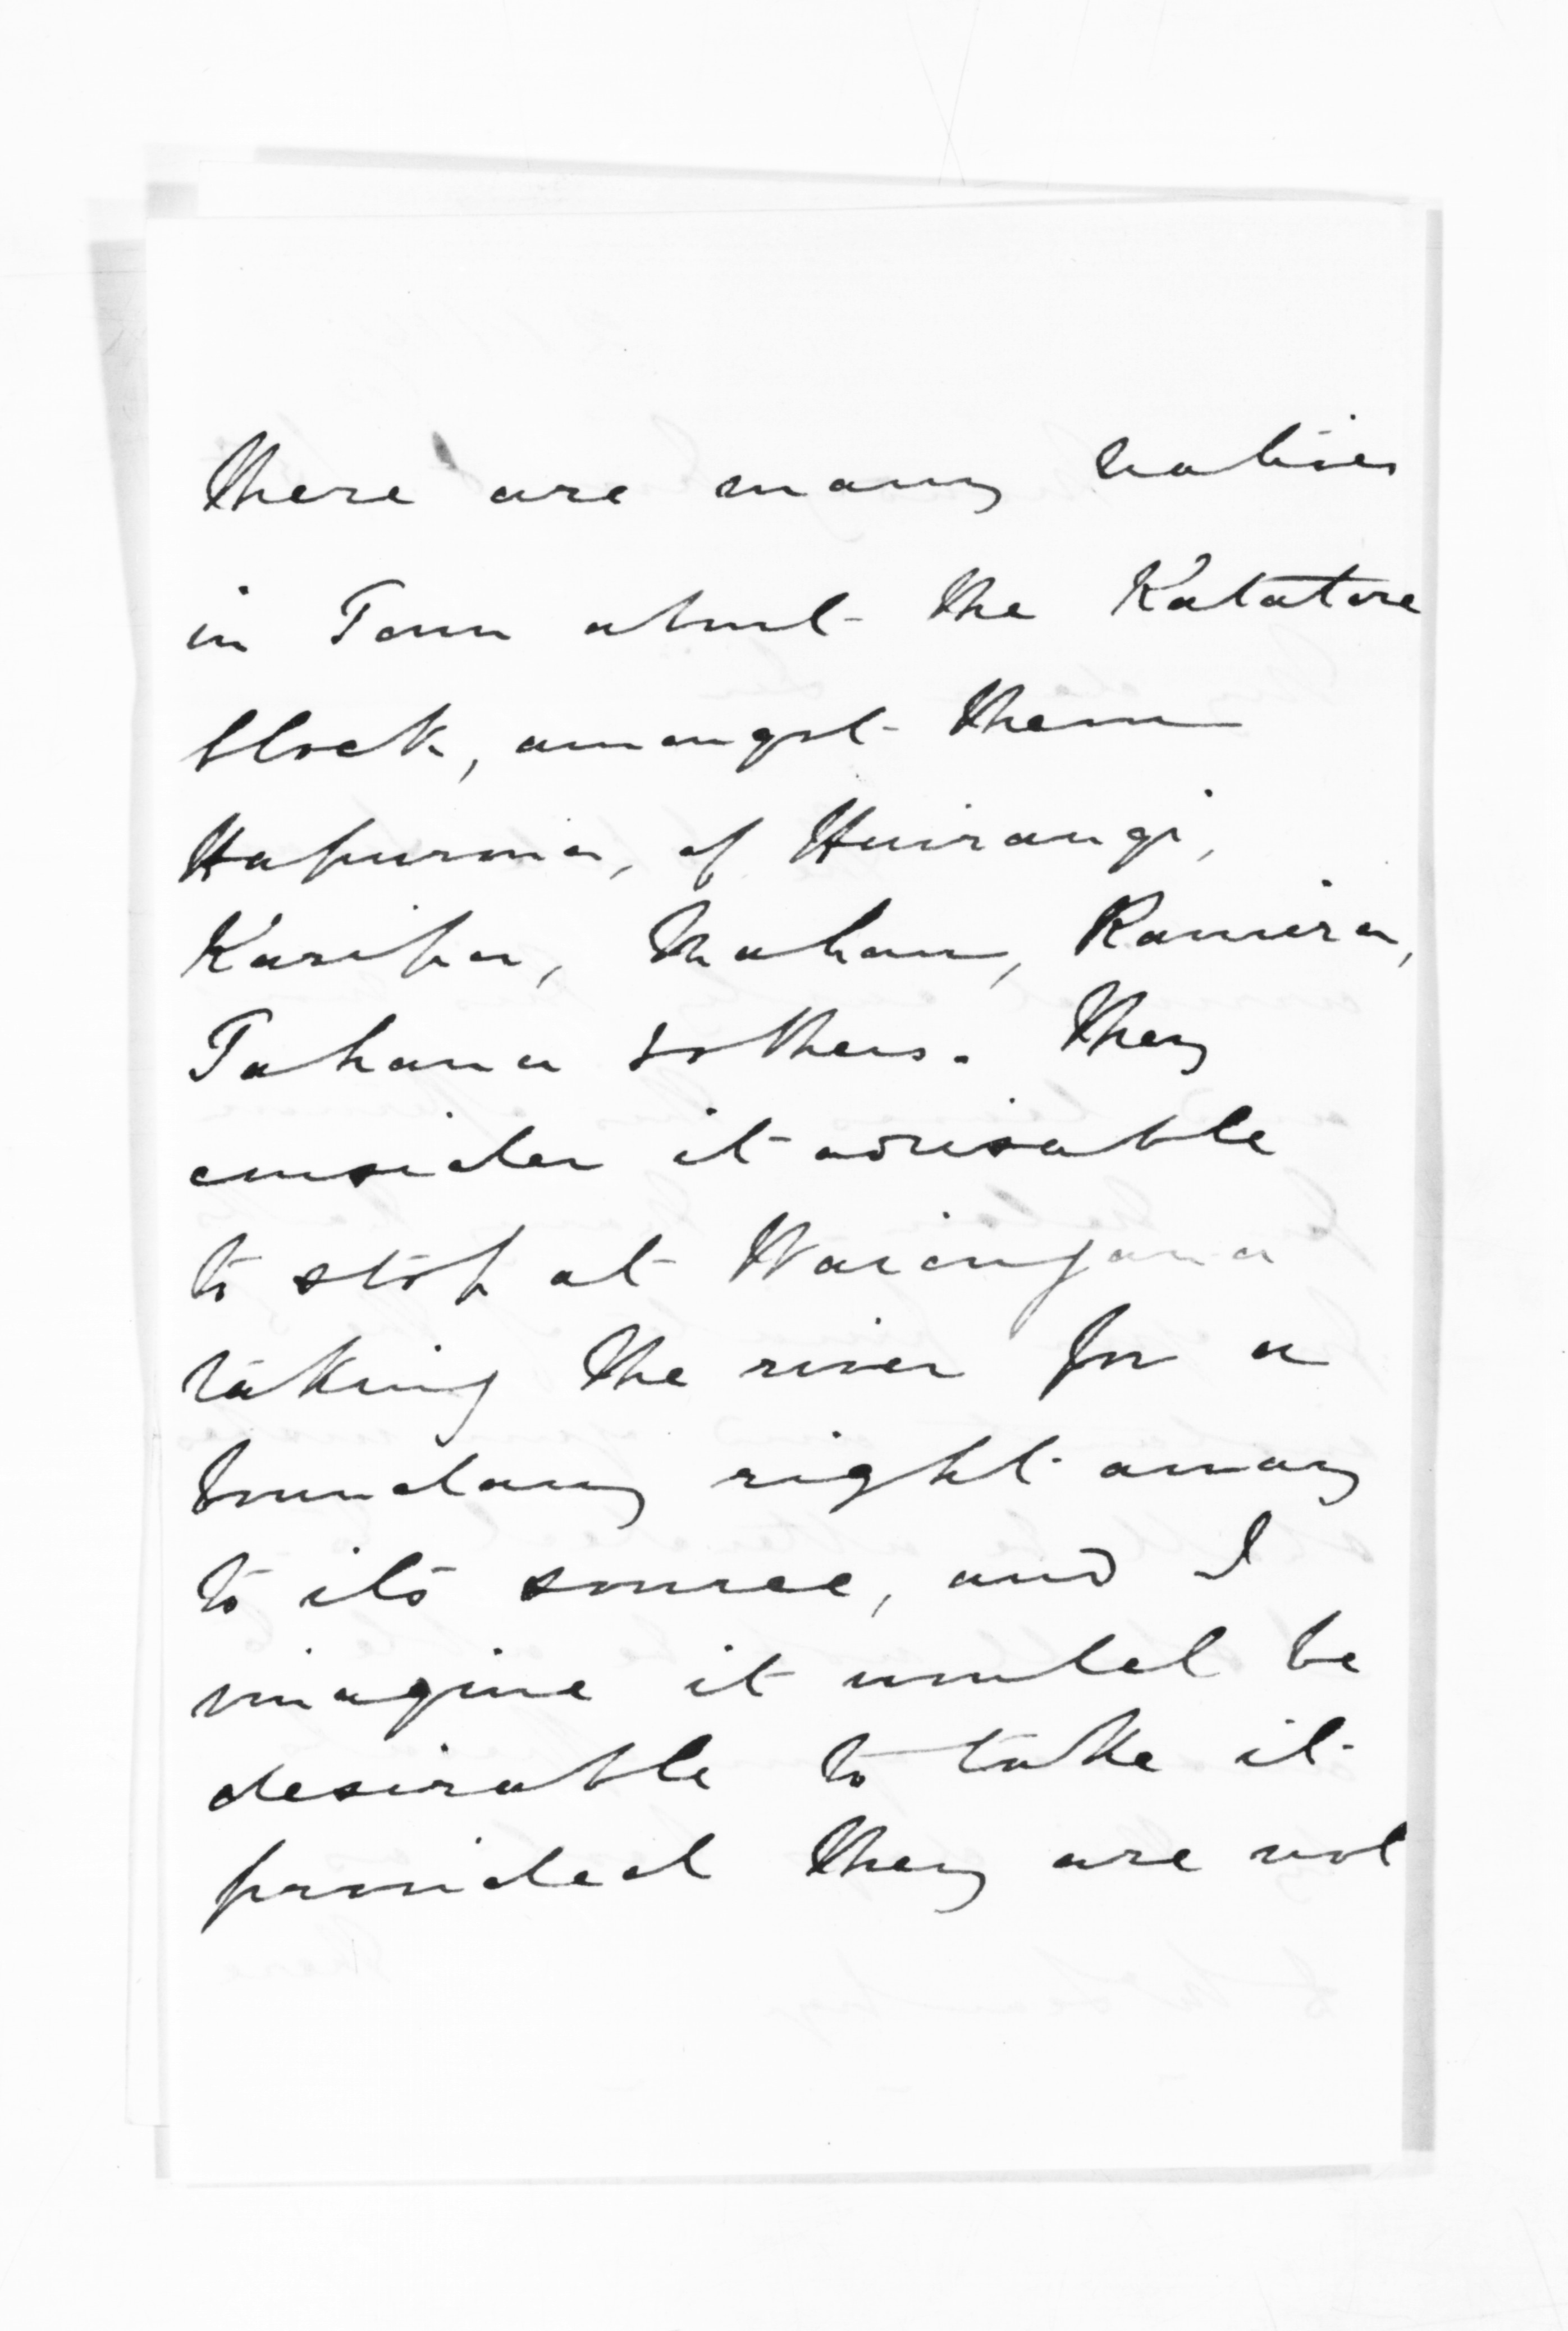 there are many natives
in Town about the Katatore
block, amongst them
Hapurona, of Huirangi,
Karipa, Mahau, Ramira,
Tahana & others. They
consider it advisable
to stop at Waiongana
taking the river for a
boundary right away
to its source, and I
imagine it would be
desirable to take it
provided they are not